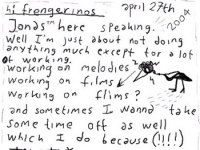 hi frengerinos april 27th 2004
Jonas™ here speaking.
Well I'm just about not doing
anything much except for a lot
of working.
working on melodies
working on films
working on flims?
and sometimes I wanna take
some time off as well
which I do because (!!!!)